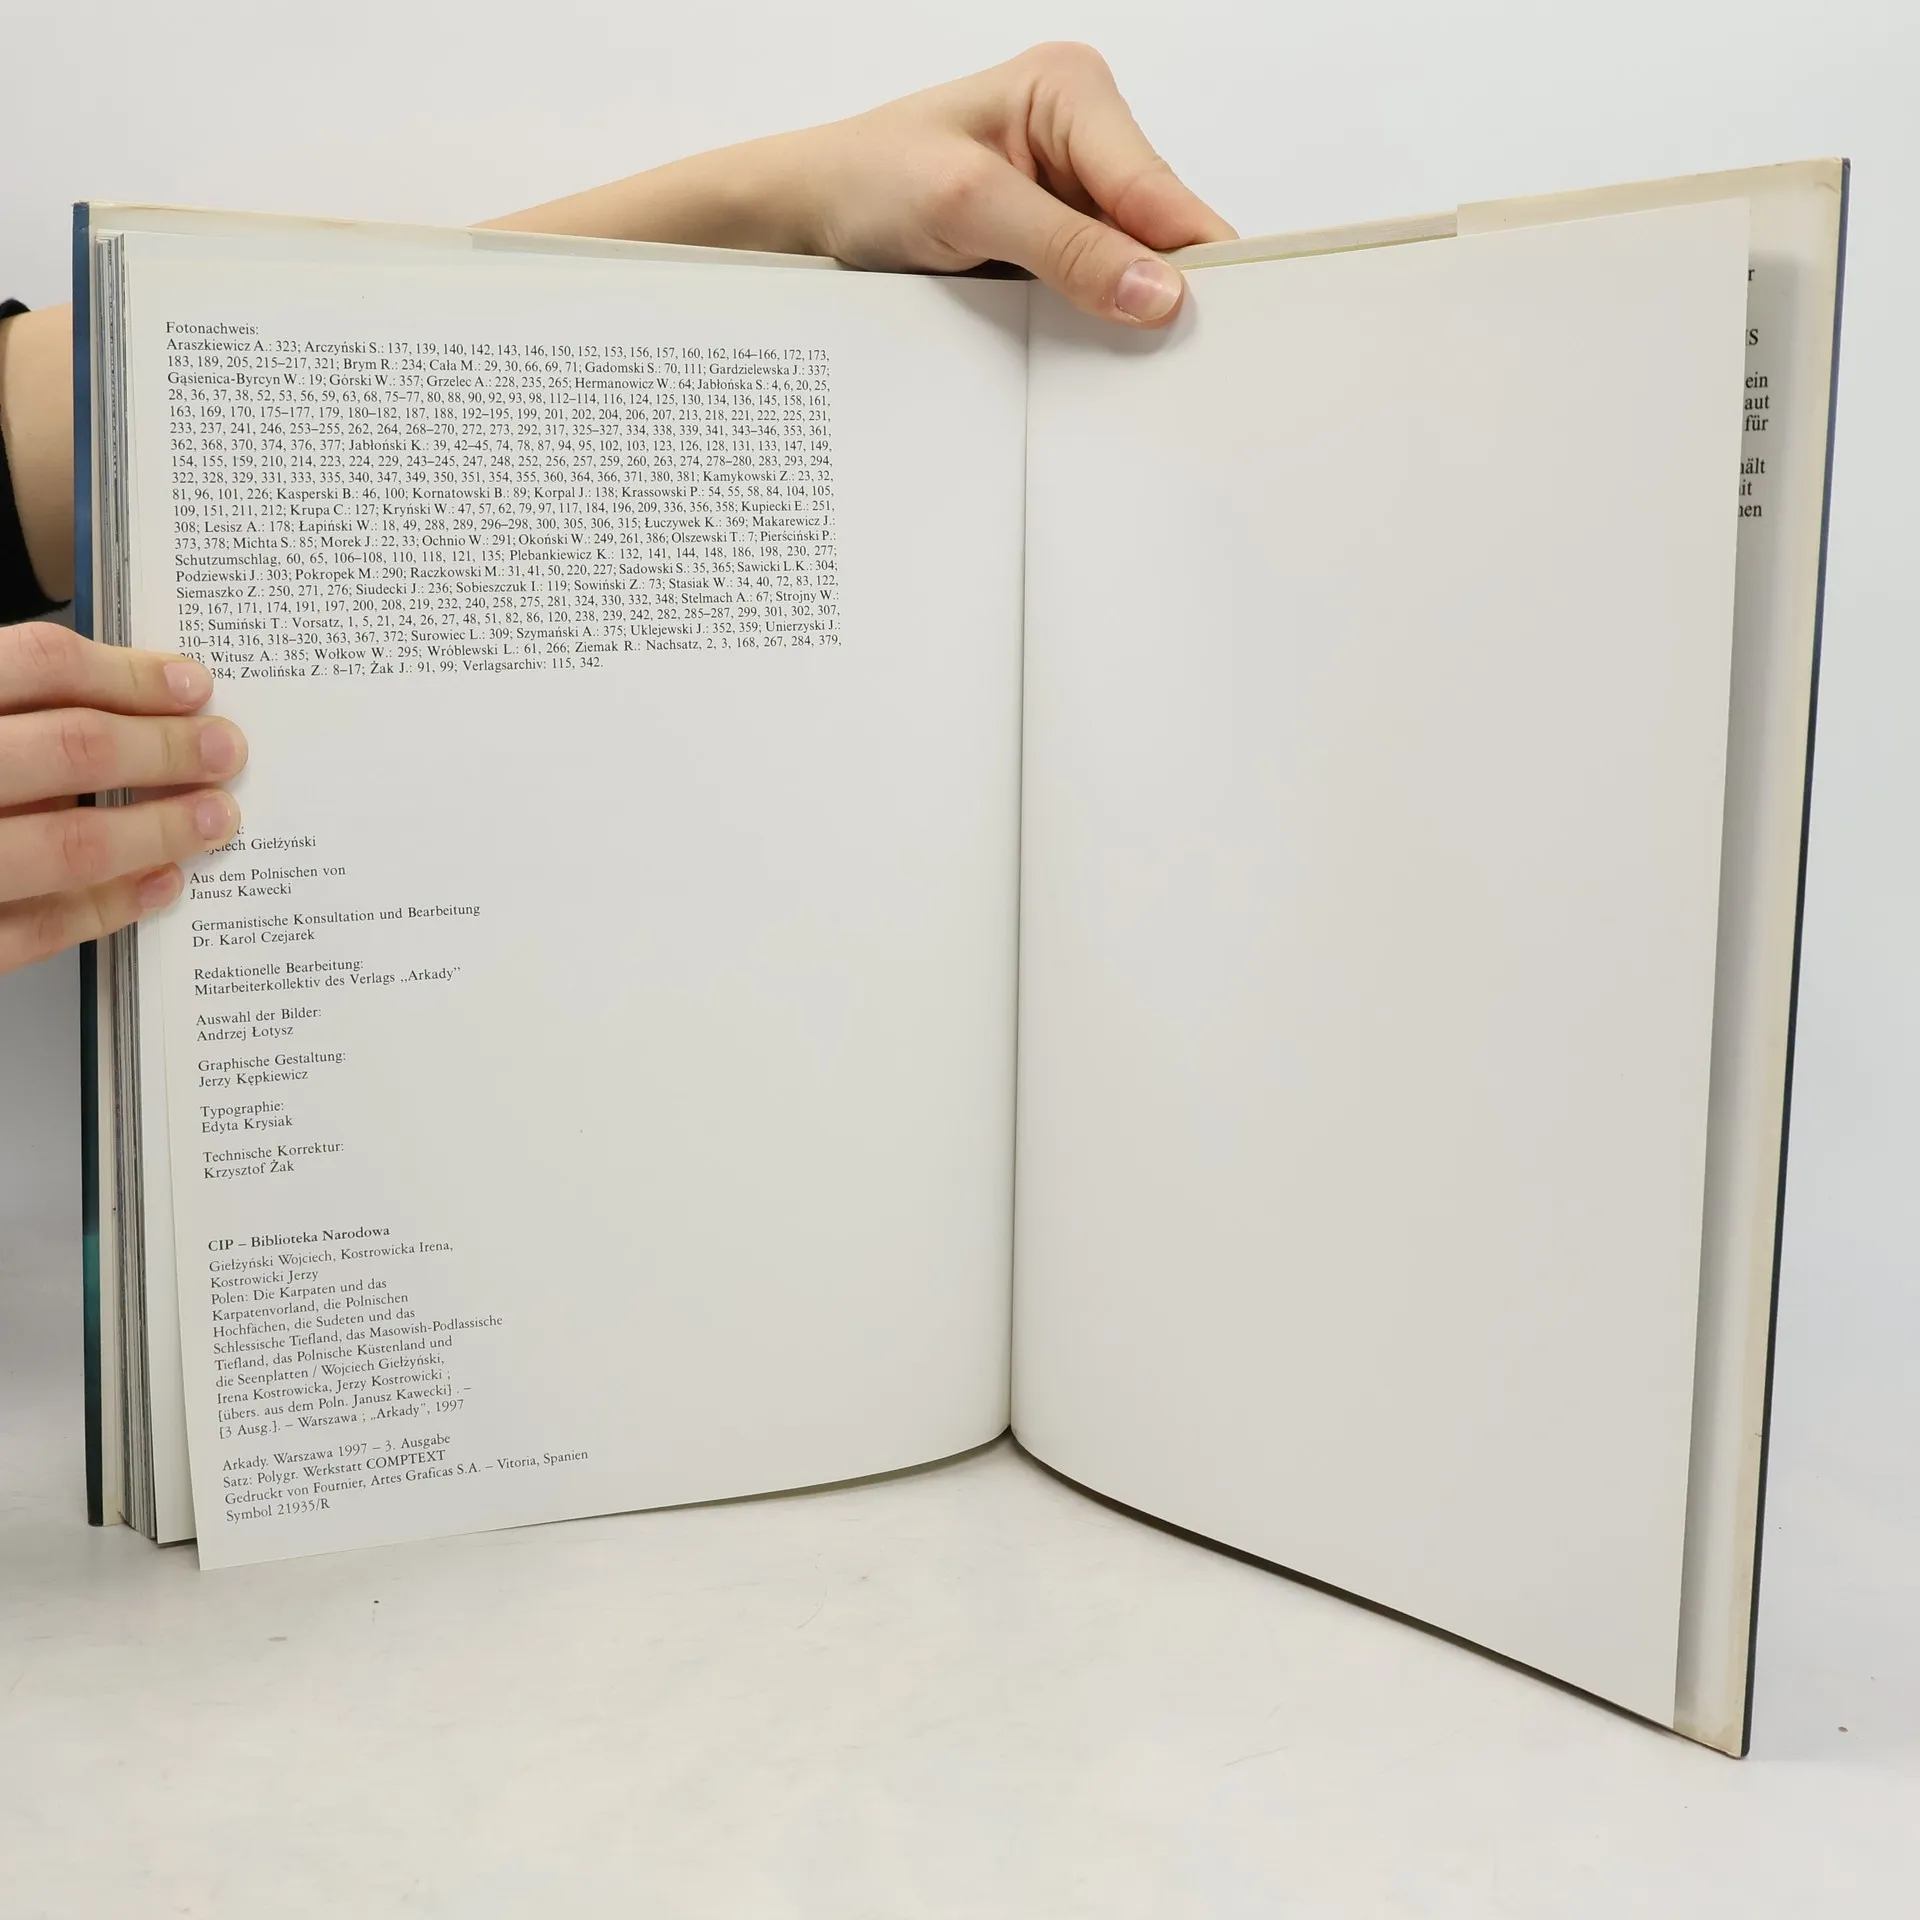 Fotonachweis:
Araszkiewicz A.: 323; Arczyński S.: 137, 139, 140, 142, 143, 146, 150, 152, 153, 156, 157, 160, 162, 164–166, 172, 173,
183, 189, 205, 215–217, 321; Brym R.: 234; Cała M.: 29, 30, 66, 69, 71; Gadomski S.: 70, 111; Gardzielewska J.: 337;
Gąsienica-Byrcyn W.: 19; Górski W.: 357; Grzelec A.: 228, 235, 265; Hermanowicz W.: 64; Jabłońska S.: 4, 6, 20, 25,
28, 36, 37, 38, 52, 53, 56, 59, 63, 68, 75–77, 80, 88, 90, 92, 93, 98, 112–114, 116, 124, 125, 130, 134, 136, 145, 158, 161,
163, 169, 170, 175–177, 179, 180–182, 187, 188, 192–195, 199, 201, 202, 204, 206, 207, 213, 218, 221, 222, 225, 231,
233, 237, 241, 246, 253–255, 262, 264, 268–270, 272, 273, 292, 317, 325–327, 334, 338, 339, 341, 343–346, 353, 361,
362, 368, 370, 374, 376, 377; Jabłoński K.: 39, 42–45, 74, 78, 87, 94, 95, 102, 103, 123, 126, 128, 131, 133, 147, 149,
154, 155, 159, 210, 214, 223, 224, 229, 243–245, 247, 248, 252, 256, 257, 259, 260, 263, 274, 278–280, 283, 293, 294,
322, 328, 329, 331, 333, 335, 340, 347, 349, 350, 351, 354, 355, 360, 364, 366, 371, 380, 381; Kamykowski Z.: 23, 32,
81, 96, 101, 226; Kasperski B.: 46, 100; Kornatowski B.: 89; Korpal J.: 138; Krassowski P.: 54, 55, 58, 84, 104, 105,
109, 151, 211, 212; Krupa C.: 127; Kryński W.: 47, 57, 62, 79, 97, 117, 184, 196, 209, 336, 356, 358; Kupiecki E.: 251,
308; Lesisz A.: 178; Łapiński W.: 18, 49, 288, 289, 296–298, 300, 305, 306, 315; Łuczywek K.: 369; Makarewicz J.:
373, 378; Michta S.: 85; Morek J.: 22, 33; Ochnio W.: 291; Okoński W.: 249, 261, 386; Olszewski T.: 7; Pierściński P.:
Schutzumschlag, 60, 65, 106–108, 110, 118, 121, 135; Plebankiewicz K.: 132, 141, 144, 148, 186, 198, 230, 277;
Podziewski J.: 303; Pokropek M.: 290; Raczkowski M.: 31, 41, 50, 220, 227; Sadowski S.: 35, 365; Sawicki L.K.: 304;
Siemaszko Z.: 250, 271, 276; Siudecki J.: 236; Sobieszczuk I.: 119; Sowiński Z.: 73; Stasiak W.: 34, 40, 72, 83, 122,
129, 167, 171, 174, 191, 197, 200, 208, 219, 232, 240, 258, 275, 281, 324, 330, 332, 348; Stelmach A.: 67; Strojny W.:
185; Sumiński T.: Vorsatz, 1, 5, 21, 24, 26, 27, 48, 51, 82, 86, 120, 238, 239, 242, 282, 285–287, 299, 301, 302, 307,
310–314, 316, 318–320, 363, 367, 372; Surowiec L.: 309; Szymański A.: 375; Uklejewski J.: 352, 359; Unierzyski J.:
Witusz A.: 385; Wołkow W.: 295; Wróblewski L.: 61, 266; Ziemak R.: Nachsatz, 2, 3, 168, 267, 284, 379,
384; Zwolińska Z.: 8–17; Żak J.: 91, 99; Verlagsarchiv: 115, 342.
Giełżyński
Aus dem Polnischen von
Janusz Kawecki
Germanistische Konsultation und Bearbeitung
Dr. Karol Czejarek
Redaktionelle Bearbeitung:
Mitarbeiterkollektiv des Verlags „Arkady”
Auswahl der Bilder:
Andrzej Łotysz
Graphische Gestaltung:
Jerzy Kępkiewicz
Typographie:
Edyta Krysiak
Technische Korrektur:
Krzysztof Żak
CIP – Biblioteka Narodowa
Giełżyński Wojciech, Kostrowicka Irena,
Kostrowicki Jerzy
Polen: Die Karpaten und das
Karpatenvorland, die Polnischen
Hochfächen, die Sudeten und das
Schlessische Tiefland, das Masowish-Podlassische
Tiefland, das Polnische Küstenland und
die Seenplatten / Wojciech Giełżyński,
Irena Kostrowicka, Jerzy Kostrowicki ;
[übers. aus dem Poln. Janusz Kawecki] . –
[3 Ausg.]. – Warszawa ; „Arkady”, 1997
Arkady. Warszawa 1997 – 3. Ausgabe
Satz: Polygr. Werkstatt COMPTEXT
Gedruckt von Fournier, Artes Graficas S.A. – Vitoria, Spanien
Symbol 21935/R
ein
für